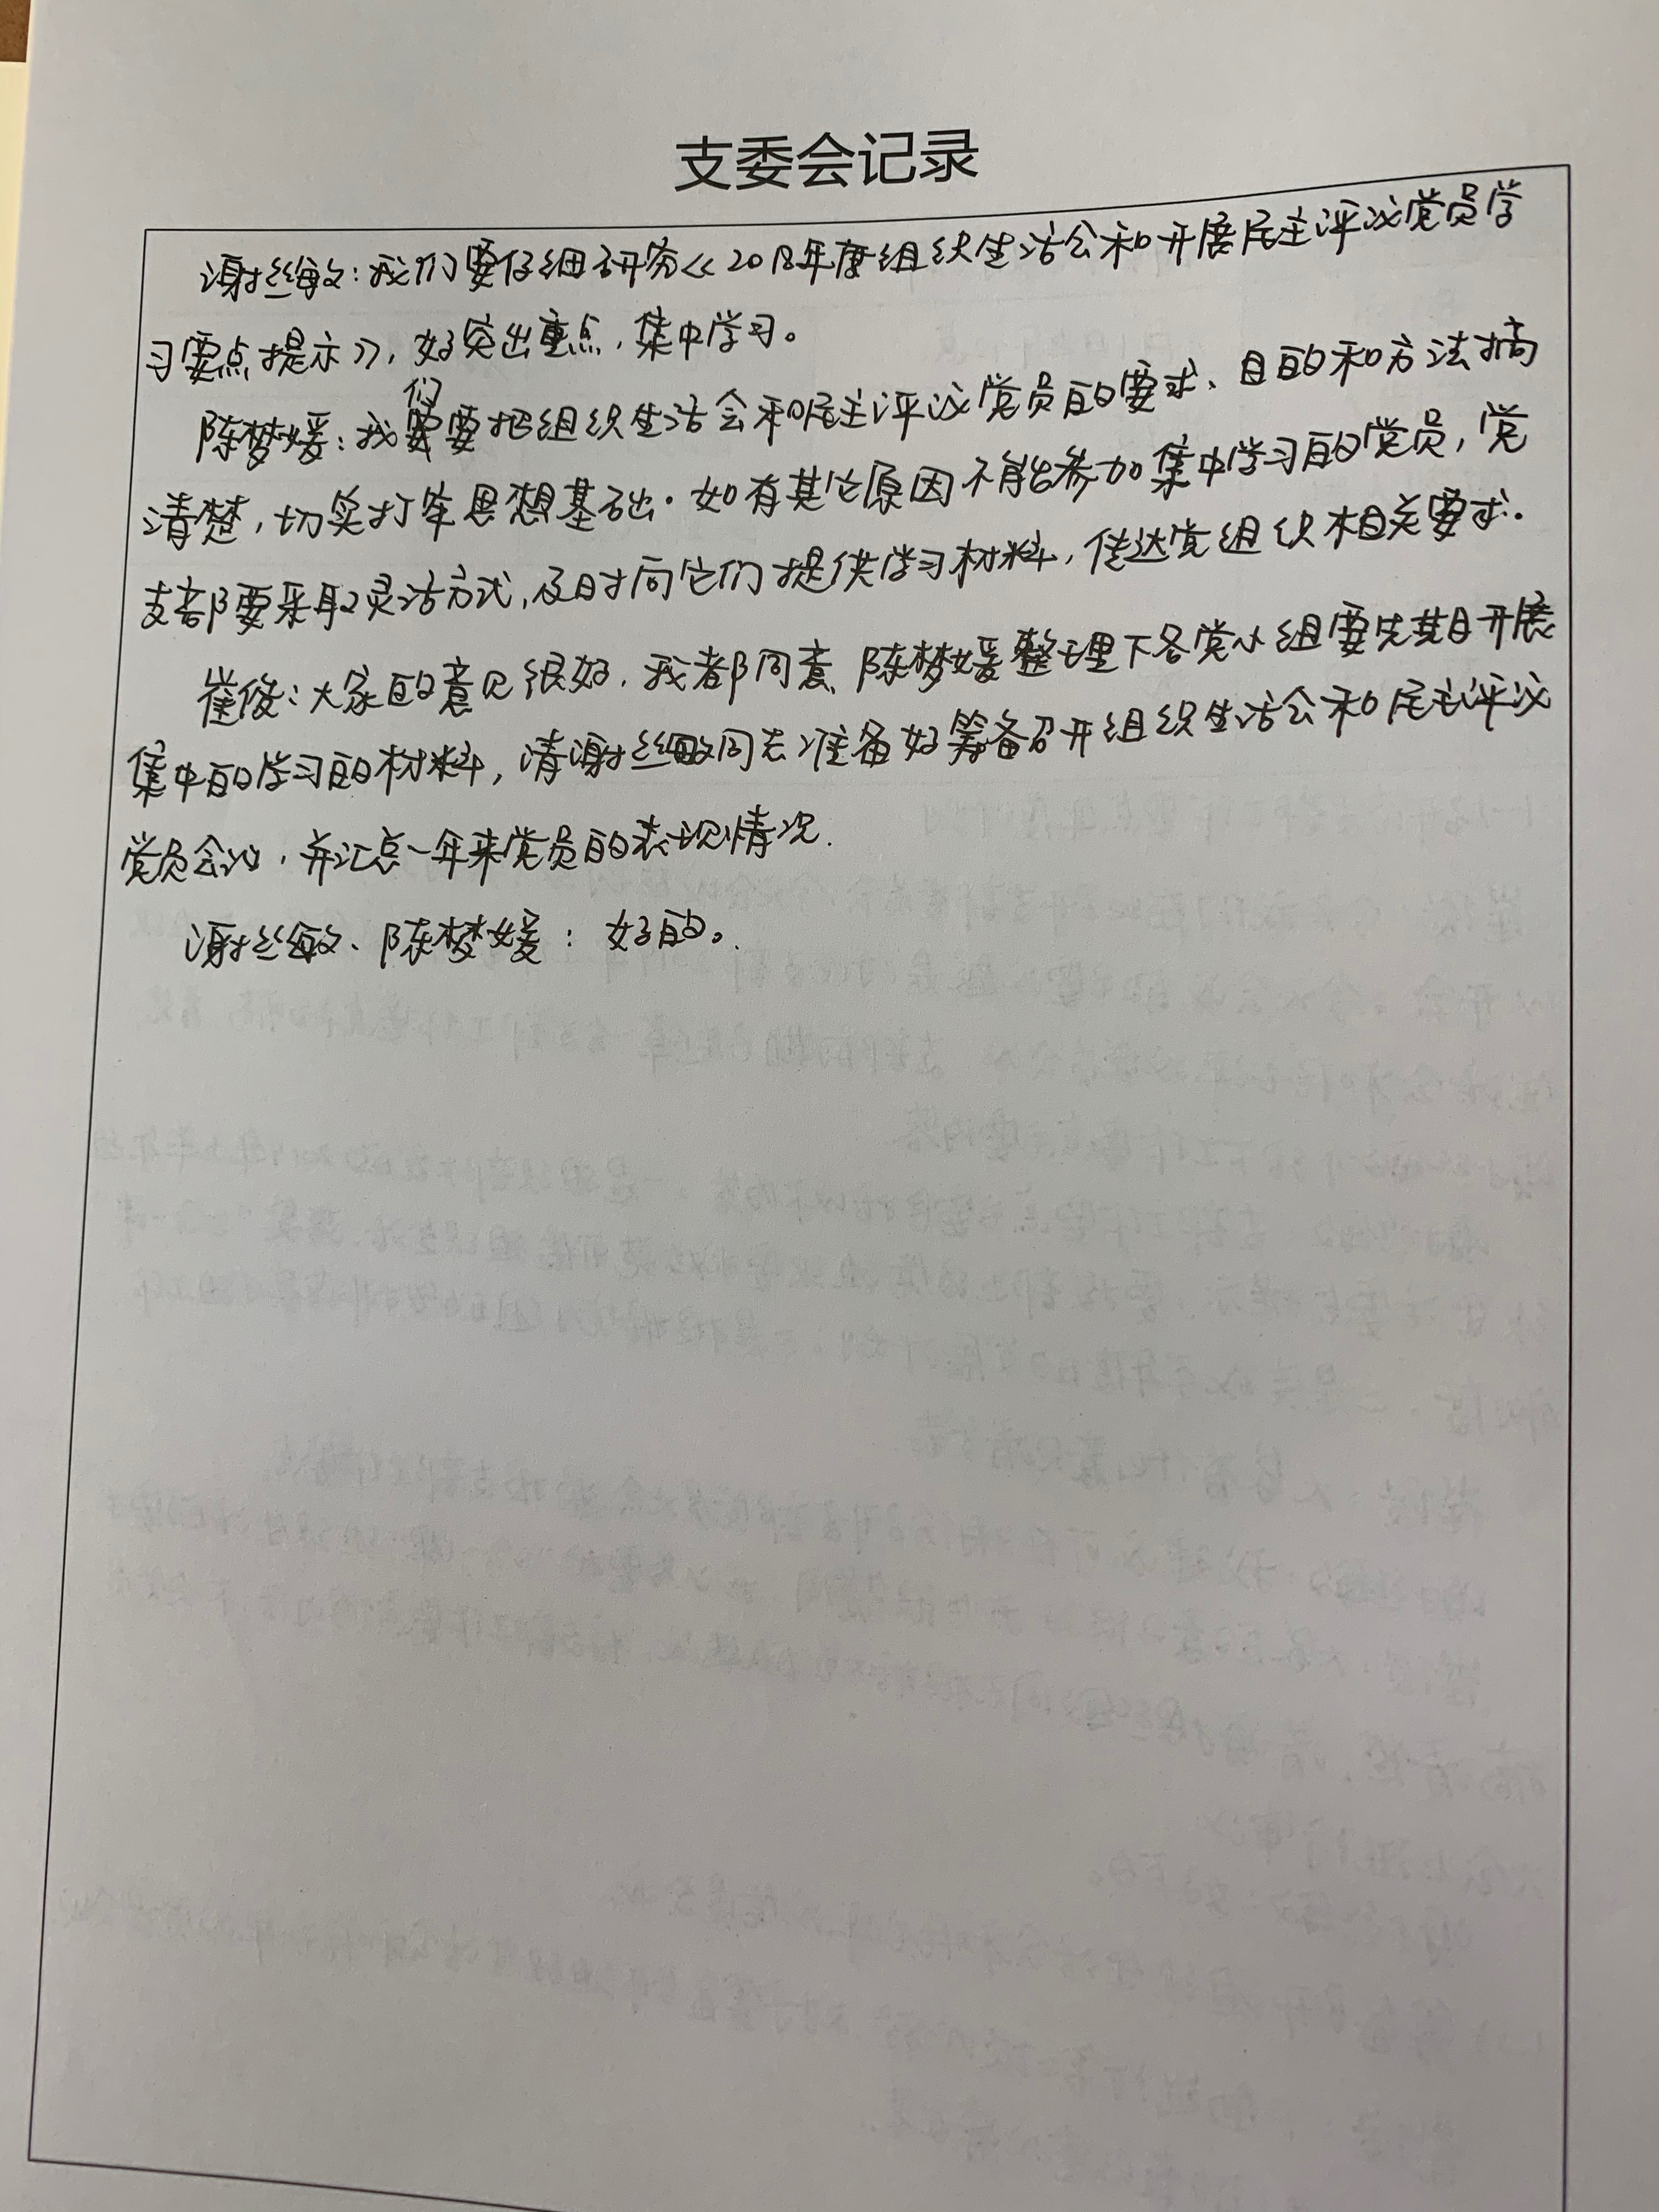 支委会记录
谢丝敏：我们要仔细研究《2018年度组织生活会和开展民主评议党员学
习要点提示》，好突出重点，集中学习。
陈梦媛：我们要把组织生活会和民主评议党员的要求、目的和方法搞
清楚，切实打牢思想基础。如有其它原因不能参加集中学习的党员，党
支部要采取灵活方式，及时向它们提供学习材料，传达党组织相关要求.
崔俊：大家的意见很好，我都同意，陈梦媛整理下各党小组要先期开展
集中的学习的材料，请谢丝敏同志准备好筹备召开组织生活会和民主评议
党员会议，并汇总一年来党员的表现情况.
谢丝敏、陈梦媛：好的。